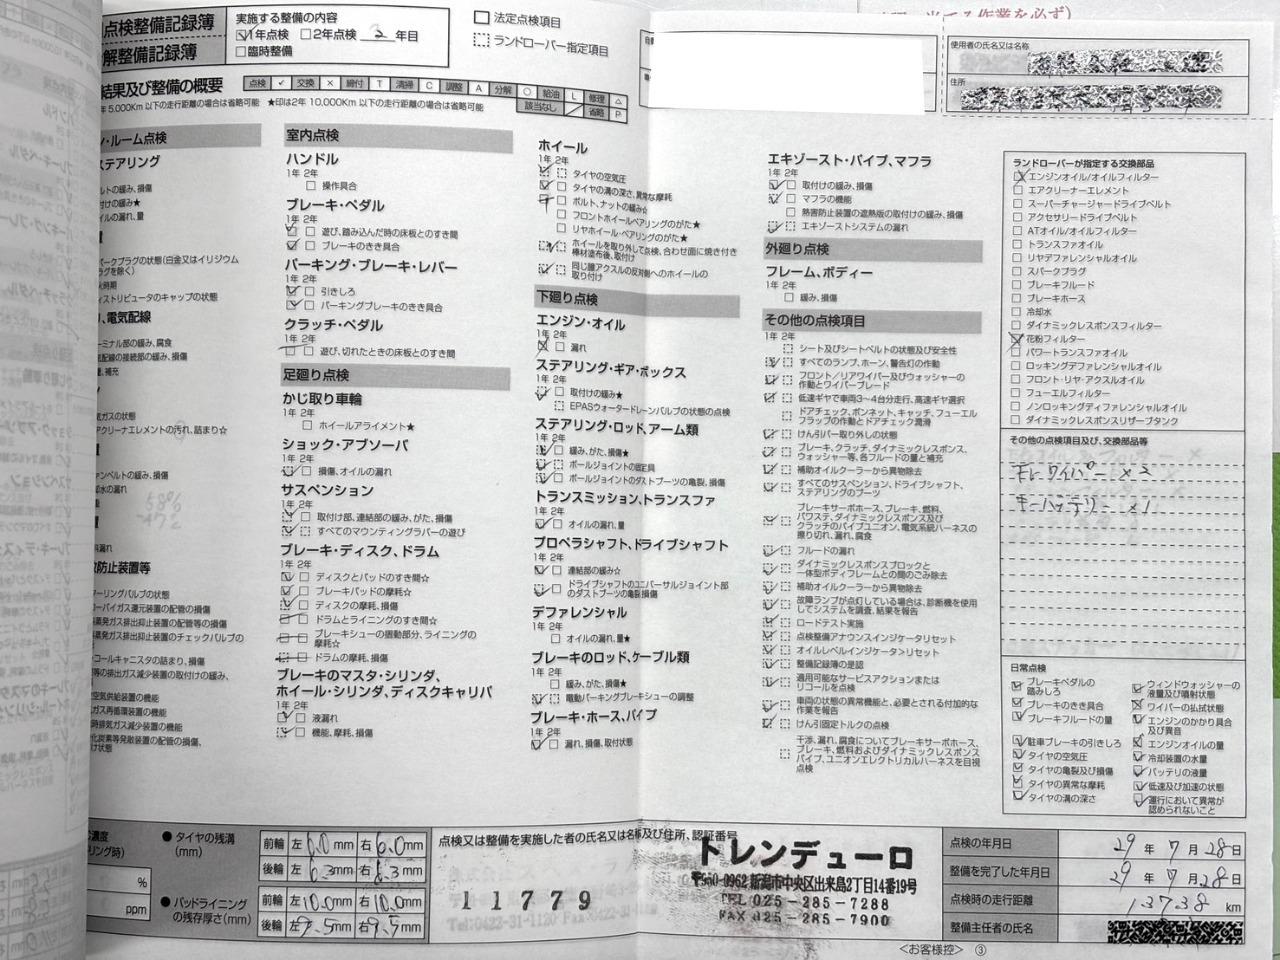 点検整備記録簿
解整備記録簿
実施する整備の内容
1年点検 2年点検 3 年目
臨時整備
法定点検項目
ランドローバー指定項目
使用者の氏名又は名称
住所
結果及び整備の概要
点検 レ 交換 × 締付 T 清掃 C 調整 A 分解 ○ 給油 L 修理 △
該当なし / 省略 P
年 5,000Km 以下の走行距離の場合は省略可能 ★印は2年 10,000Km 以下の走行距離の場合は省略可能
ン・ルーム点検
ステアリング
ルトの緩み、損傷
付けの緩み★
イルの漏れ、量
パークプラグの状態(白金又はイリジウム
ラグを除く)
火時期
ィストリビュータのキャップの状態
リ、電気配線
ーミナル部の緩み、腐食
気配線の接続部の緩み、損傷
、補充
ガスの状態
アクリーナエレメントの汚れ、詰まり☆
ァンベルトの緩み、損傷
却水の漏れ
料漏れ
防止装置等
ーリングバルブの状態
ーバイガス還元装置の配管の損傷
蒸発ガス排出抑止装置の配管等の損傷
蒸発ガス排出抑止装置のチェックバルブの
コールキャニスタの詰まり、損傷
等の排出ガス減少装置の取付けの緩み、
空気供給装置の機能
ガス再循環装置の機能
時排気ガス減少装置の機能
化炭素等発散装置の配管の損傷、
け状態
室内点検
ハンドル
1年 2年
操作具合
ブレーキ・ペダル
1年 2年
遊び、踏み込んだ時の床板とのすき間
ブレーキのきき具合
パーキング・ブレーキ・レバー
1年 2年
引きしろ
パーキングブレーキのきき具合
クラッチ・ペダル
1年 2年
遊び、切れたときの床板とのすき間
足廻り点検
かじ取り車輪
1年 2年
ホイールアライメント★
ショック・アブソーバ
1年 2年
損傷、オイルの漏れ
サスペンション
1年 2年
取付け部、連結部の緩み、がた、損傷
すべてのマウンティングラバーの遊び
ブレーキ・ディスク、ドラム
1年 2年
ディスクとパッドのすき間☆
ブレーキパッドの摩耗☆
ディスクの摩耗、損傷
ドラムとライニングのすき間☆
ブレーキシューの摺動部分、ライニングの
摩耗☆
ドラムの摩耗、損傷
ブレーキのマスタ・シリンダ、
ホイール・シリンダ、ディスクキャリパ
1年 2年
液漏れ
機能、摩耗、損傷
ホイール
1年 2年
タイヤの空気圧
タイヤの溝の深さ、異常な摩耗
ボルト、ナットの緩み☆
フロントホイールベアリングのがた★
リヤホイールベアリングのがた★
ホイールを取り外して点検、合わせ面に焼き付き
棒材塗布後、取付け
同じ種アクスルの反対側へのホイールの
取り付け
下廻り点検
エンジン・オイル
1年 2年
漏れ
ステアリング・ギア・ボックス
1年 2年
取付けの緩み★
EPASウォータードレーンバルブの状態の点検
ステアリング・ロッド、アーム類
1年 2年
緩み、がた、損傷★
ボールジョイントの固定具
ボールジョイントのダストブーツの亀裂、損傷
トランスミッション、トランスファ
1年 2年
オイルの漏れ、量
プロペラシャフト、ドライブシャフト
1年 2年
連結部の緩み☆
ドライブシャフトのユニバーサルジョイント部
のダストブーツの亀裂損傷
デファレンシャル
1年 2年
オイルの漏れ、量★
ブレーキのロッド、ケーブル類
1年 2年
緩み、がた、損傷★
電動パーキングブレーキシューの調整
ブレーキ・ホース、パイプ
1年 2年
漏れ、損傷、取付状態
エキゾースト・パイプ、マフラ
1年 2年
取付けの緩み、損傷
マフラの機能
熱害防止装置の遮熱版の取付けの緩み、損傷
エキゾーストシステムの漏れ
外廻り点検
フレーム、ボディー
1年 2年
緩み、損傷
その他の点検項目
1年 2年
シート及びシートベルトの状態及び安全性
すべてのランプ、ホーン、警告灯の作動
フロント/リアワイパー及びウォッシャーの
作動とワイパーブレード
低速ギヤで車両3〜4台分走行、高速ギヤ選択
ドアチェック、ボンネット、キャッチ、フューエル
フラップの作動とドアチェック潤滑
けん引バー取り外しの状態
ブレーキ、クラッチ、ダイナミックレスポンス、
ウォッシャー等、各フルードの量と補充
補助オイルクーラーから異物除去
すべてのサスペンション、ドライブシャフト、
ステアリングのブーツ
ブレーキサーボホース、ブレーキ、燃料、
パワステ、ダイナミックレスポンス及び
クラッチのパイプユニオン、電気系統ハーネスの
擦り切れ、漏れ、腐食
フルードの漏れ
ダイナミックレスポンスブロックと
一体型ボディフレームとの間のごみ除去
補助オイルクーラーから異物除去
故障ランプが点灯している場合は、診断機を使用
してシステムを調査、結果を報告
ロードテスト実施
点検整備アナウンスインジケータリセット
オイルレベルインジケータ>リセット
整備記録簿の是認
適用可能なサービスアクションまたは
リコールを点検
車両の状態の異常機能と、必要とされる付加的な
作業を報告
けん引固定トルクの点検
干渉、漏れ、腐食についてブレーキサーボホース、
ブレーキ、燃料およびダイナミックレスポンス
パイプ、ユニオンエレクトリカルハーネスを目視
点検
ランドローバーが指定する交換部品
エンジンオイル/オイルフィルター
エアクリーナーエレメント
スーパーチャージャードライブベルト
アクセサリードライブベルト
ATオイル/オイルフィルター
トランスファオイル
リヤデファレンシャルオイル
スパークプラグ
ブレーキフルード
ブレーキホース
冷却水
ダイナミックレスポンスフィルター
花粉フィルター
パワートランスファオイル
ロッキングデファレンシャルオイル
フロント・リヤ・アクスルオイル
フューエルフィルター
ノンロッキングディファレンシャルオイル
ダイナミックレスポンスリザーブタンク
その他の点検項目及び、交換部品等
キレワイパー ×2
キーバッテリー ×1
日常点検
ブレーキペダルの
踏みしろ
ブレーキのきき具合
ブレーキフルードの量
駐車ブレーキの引きしろ
タイヤの空気圧
タイヤの亀裂及び損傷
タイヤの異常な摩耗
タイヤの溝の深さ
ウィンドウォッシャーの
液量及び噴射状態
ワイパーの払拭状態
エンジンのかかり具合
及び異音
エンジンオイルの量
冷却装置の水量
バッテリの液量
低速及び加速の状態
運行において異常が
認められないこと
濃度
リング時)
%
ppm
● タイヤの残溝
(mm)
前輪 左 6.0 mm 右 6.0 mm
後輪 左 6.3 mm 右 6.3 mm
● パッドライニング
の残存厚さ(mm)
前輪 左 10.0 mm 右 10.0 mm
後輪 左 9.5 mm 右 9.5 mm
点検又は整備を実施した者の氏名又は名称及び住所、認証番号
11779
トレンデューロ
〒950-0962 新潟市中央区出来島2丁目14番19号
TEL 025-285-7288
FAX 025-285-7900
点検の年月日 29 年 7 月 28 日
整備を完了した年月日 29 年 7 月 28 日
点検時の走行距離 13738 km
整備主任者の氏名
<お客様控> ③